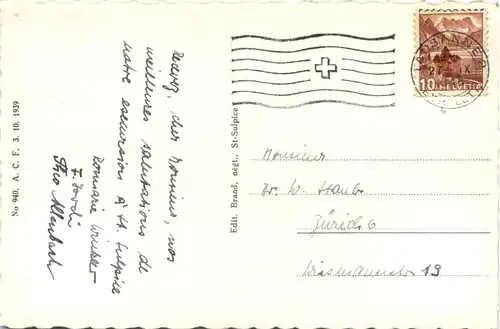 No 940. A. C. F. 3. 10. 1939
Recevez, cher Monsieur, nos
meilleures salutations de
notre excursion à St. Sulpice
Rosmarie Winkler
F. Jordi
Allenbach
Edit. Brand, négt., St-Sulpice
10 HELVETIA
Monsieur
Dr. W. Staub
Zürich 6
19